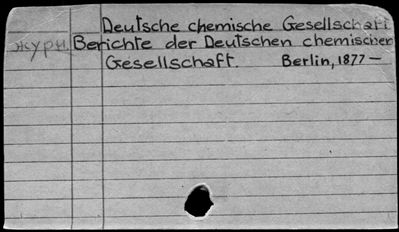 Deutsche chemische Gesellschaft
журн. Berichte der Deutschen chemischen
Gesellschaft. Berlin, 1877 —